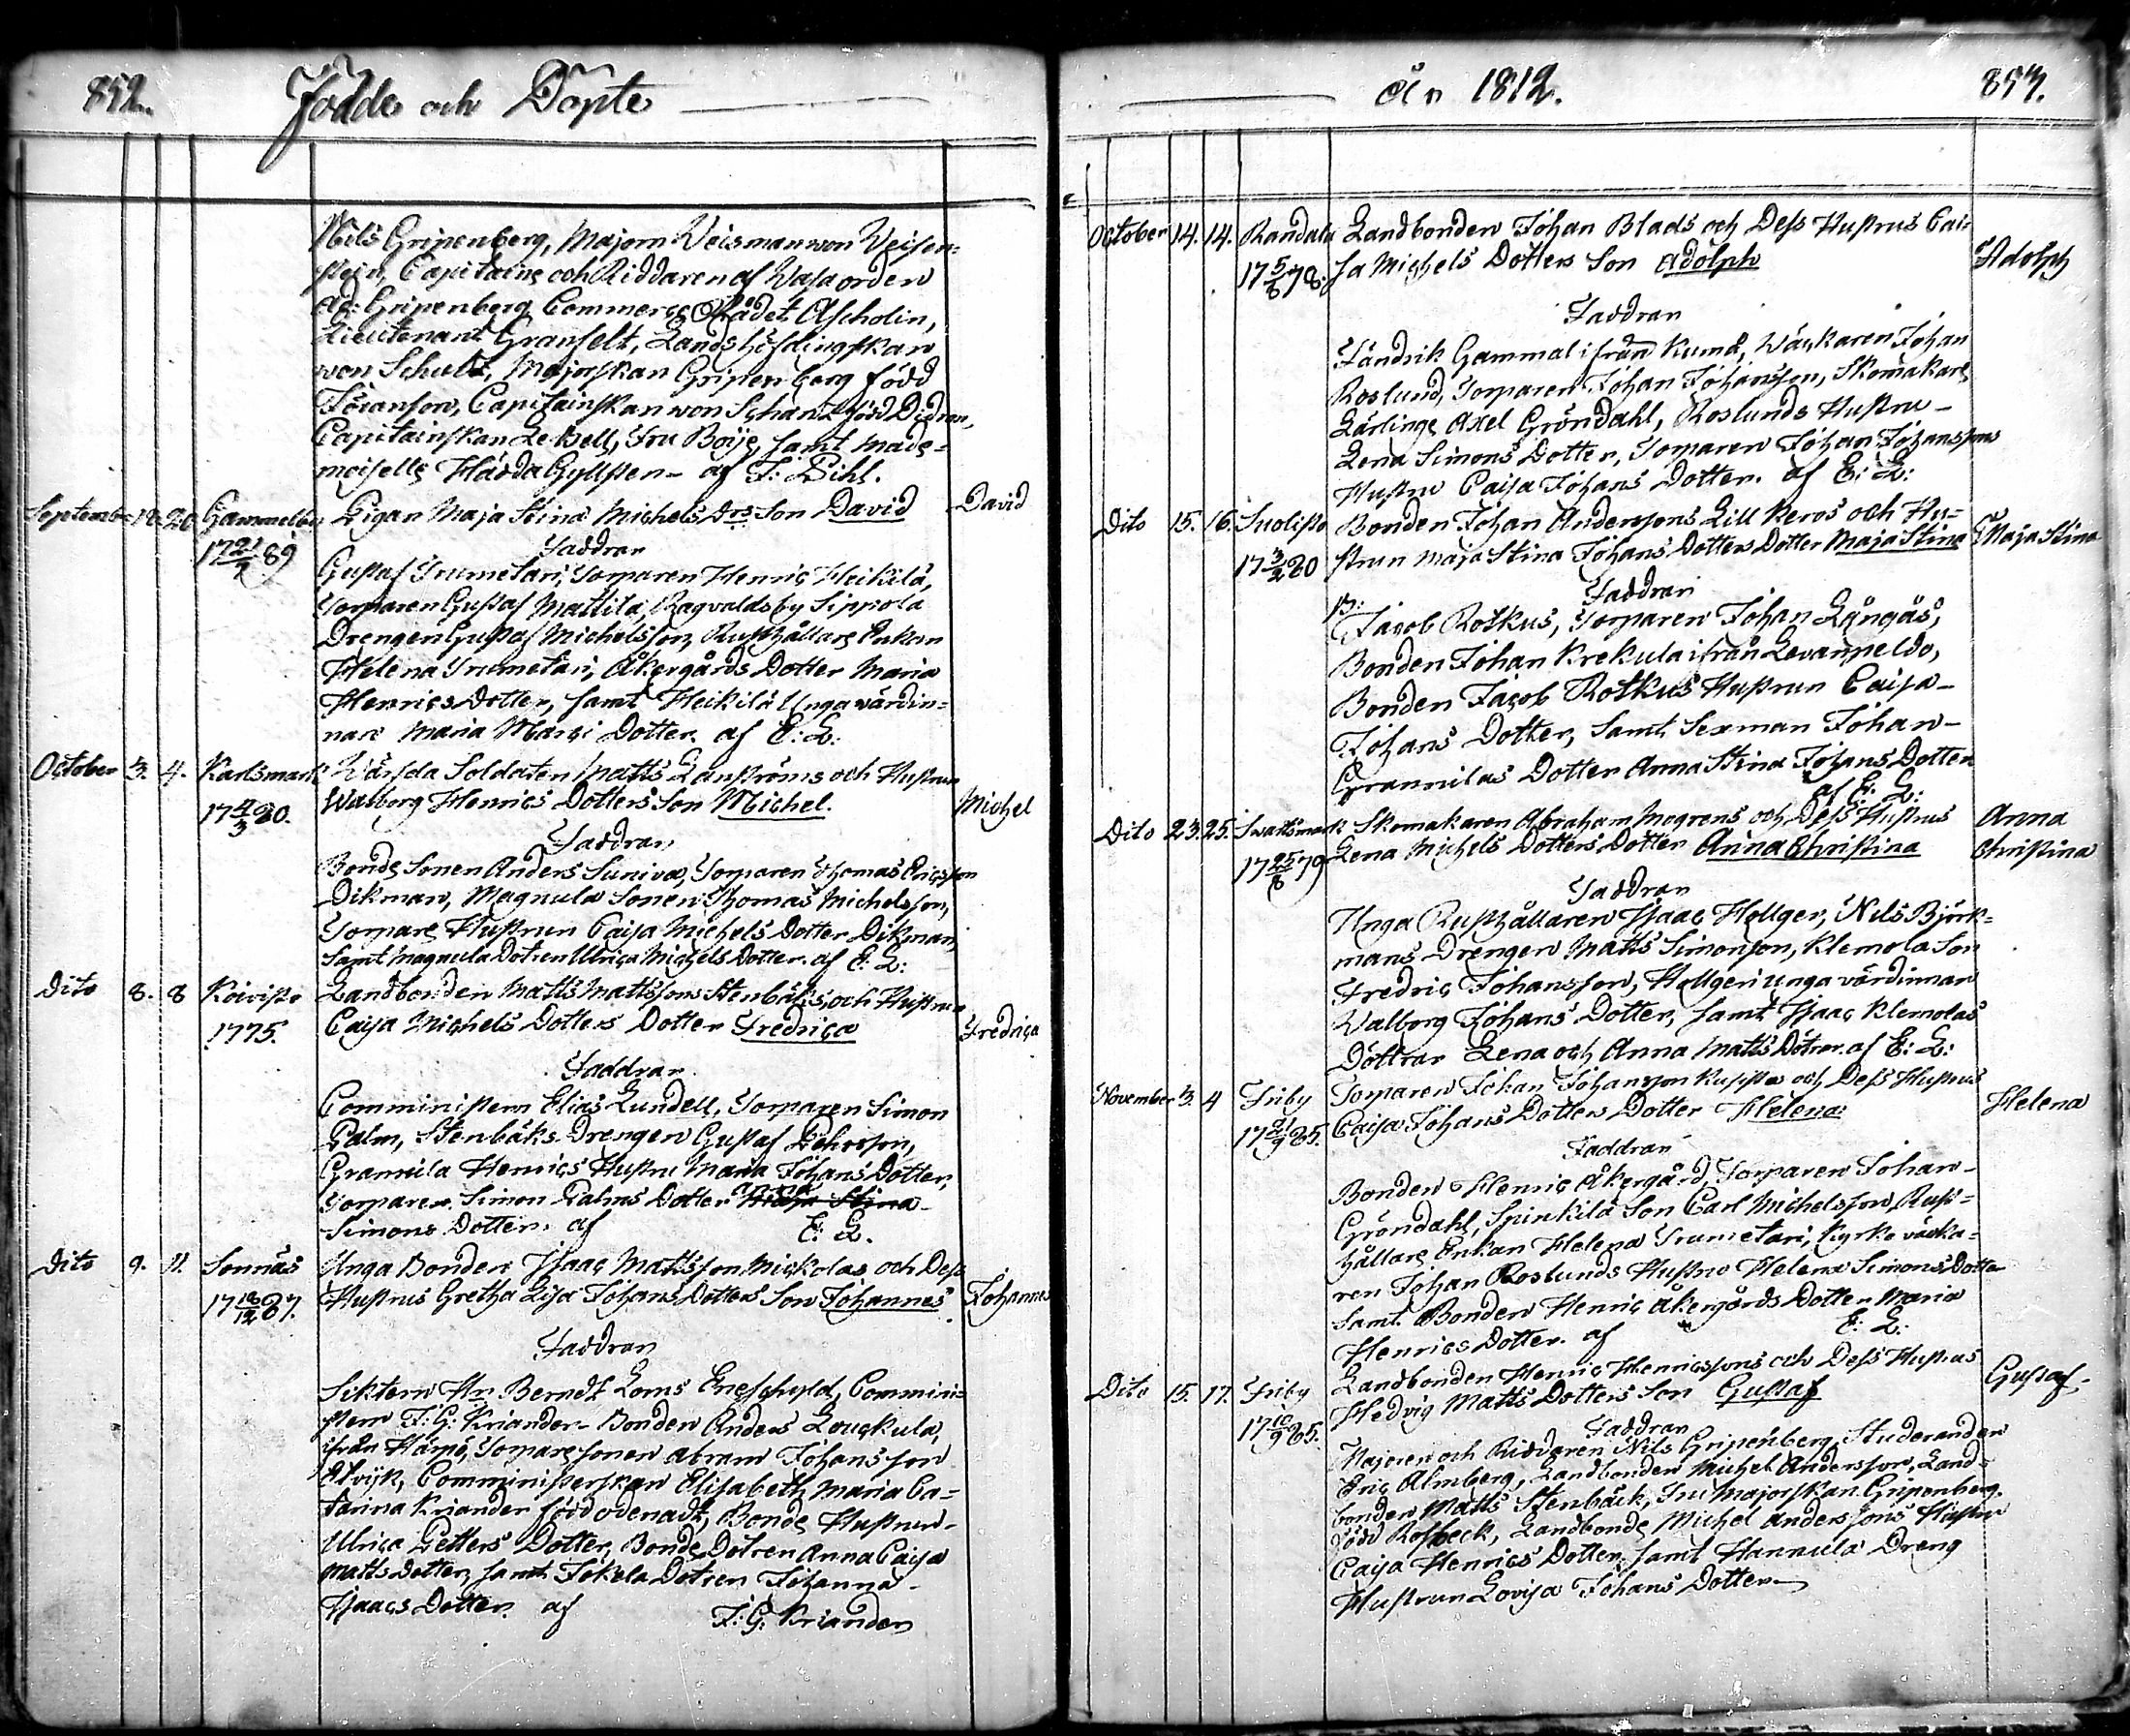 852.
Födde och Döpte
Nils Gripenberg, Majorn Weisman von Weisen-
stein, Capitaine och Riddaren af Wasa orden
Ad: Gripenberg Commerce Rådet Ascholin,
Lieutenant Granfelt, Landshöfdingskan
von Schultz, Majorskan Gripenberg född
Föranson, Capitainskan von Schantz född Didron,
Capitainskan LeBell, Fru Boije, samt Made-
moiselle Hädda Gyllsten - af F: Pihl.
September 18. 20 Gammelby Pigan Maja Stina Michels Drs Son David David
17 21/2 89
Faddrar
Gustaf Trumetari, Torparen Henric Heikilä,
Torparen Gustaf Mattila, Ragvaldsby Sippola
Drengen Gustaf Michelsson, Rusthållare Enkan
Helena Trumetari, Åkergårds Dotter Maria
Henrics Dotter, samt Heikilä Unga värdin-
nan Maria Marci Dotter. af E: L:
October 3. 4. Karlsmark Wärfda Soldaten Matts Lanströms och Hustrun
17 4/3 80. Walborg Henrics Dotters Son Michel. Michel
Faddrar
Bonde Sonen Anders Suniva, Torparen Thomas Ericsson
Dikman, Magnula Sonen Thomas Michelsson,
Torpare Hustrun Caisa Michels Dotter Dikman,
Samt Magnula Dotren Ulrica Michels Dotter. af E: L:
Dito 8. 8 Koivisto Landbonden Matts Mattssons Stenbäks, och Hustrun
1775. Caisa Michels Dotters Dotter Fredrica Fredrica
Faddrar
Comministern Elias Lundell, Torparen Simon
Palm, Stenbäks Drengen Gustaf Pehrsson,
Grannila Henrics Hustru Maria Johans Dotter,
Torparen Simon Palms Dotter Stina
Simons Dotter. af E: L.
Dito 9. 11. Sonnäs Unga Bonden Isaac Mattsson Mickolas och Dess
17 18/12 87. Hustrus Gretha Lisa Johans Dotters Son Johannes Johannes
Faddrar
Siktern Hr Berndt Loms Eneschyld, Commini-
stern F: G: Kriander - Bonden Anders Louckula,
ifrån Hampö, Torpare sonen Abram Johansson
Elvijk, Comministerskan Elisabeth Maria Ca-
tarina Kriander född odenadt, Bonde Hustrun -
Ulrica Petters Dotter, Bonde Dotren Anna Caisa
Matts Dotter, samt Jokela Dotren Johanna -
Isaacs Dotter. af F: G: Kriander
År 1812.
853.
October 14. 14. Randala Landbonden Johan Blads och Dess Hustrus Cai-
17 5/8 78. sa Michels Dotters Son Adolph Adolph
Faddrar
Fändrik Gammal ifrån Kumå, Wäckaren Johan
Roslund, Torparen Johan Johansson, Skomakare
Lärlinge Axel Gröndahl, Roslunds Hustru -
Lena Simons Dotter, Torparen Johan Johanssons
Hustru Caisa Johans Dotter. af E: L:
Dito 15. 16. Suolisto Bonden Johan Anderssons Lill Keros och Hu-
17 3/2 80 strun Maja Stina Johans Dotters Dotter Maja Stina Maja Stina
Faddrar
B:
Jacob Rotkus, Torparen Johan Långås,
Bonden Johan Krekula ifrån Levanpeldo,
Bonden Jacob Rotkus Hustrun Caisa -
Johans Dotter, Samt Sexman Johan -
Grannilas Dotter Anna Stina Johans Dotter
af E: L:
Dito 23. 25. Svartsmark Skomakaren Abraham Mogrens och Dess Hustrus Anna
17 25/8 79 Lena Michels Dotters Dotter Anna Christina Christina
Faddrar
Unga Rusthållaren Isaac Hollger, Nils Björk-
mans Drengen Matts Simonson, Klemola Son
Fredric Johansson, Hollgeri unga värdinnan
Walborg Johans Dotter, samt Isaac Klemolas
Döttrar Lena och Anna Matts Dötrar. af E: L:
November 3. 4 Friby Torparen Johan Johansson Kusista och Dess Hustrus
17 21/9 85. Caisa Johans Dotters Dotter Helena: Helena
Faddrar
Bonden Henric Åkergård, Torparen Johan -
Gröndahl, Spinkila Son Carl Michelsson, Rust-
hållare Enkan Helena Trumetari, Kyrko väcka-
ren Johan Roslunds Hustru Helena Simons Dotter
samt Bonden Henric Åkergårds Dotter Maria
Henrics Dotter. af E: L:
Dito 15. 17. Friby Landbonden Henric Henricssons och Dess Hustrus
17 10/9 85. Hedvig Matts Dotters Son Gustaf Gustaf
Faddrar
Majoren och Riddaren Nils Gripenberg, Studeranden
Eric Almberg, Landbonden Michel Andersson, Land-
bonden Matts Stenbäck, Fru Majorskan Gripenberg.
född Rosbeck, Landbonde Michel Anderssons Hustru
Caisa Henrics Dotter, samt Hannula Dreng
Hustrun Lovisa Johans Dotter